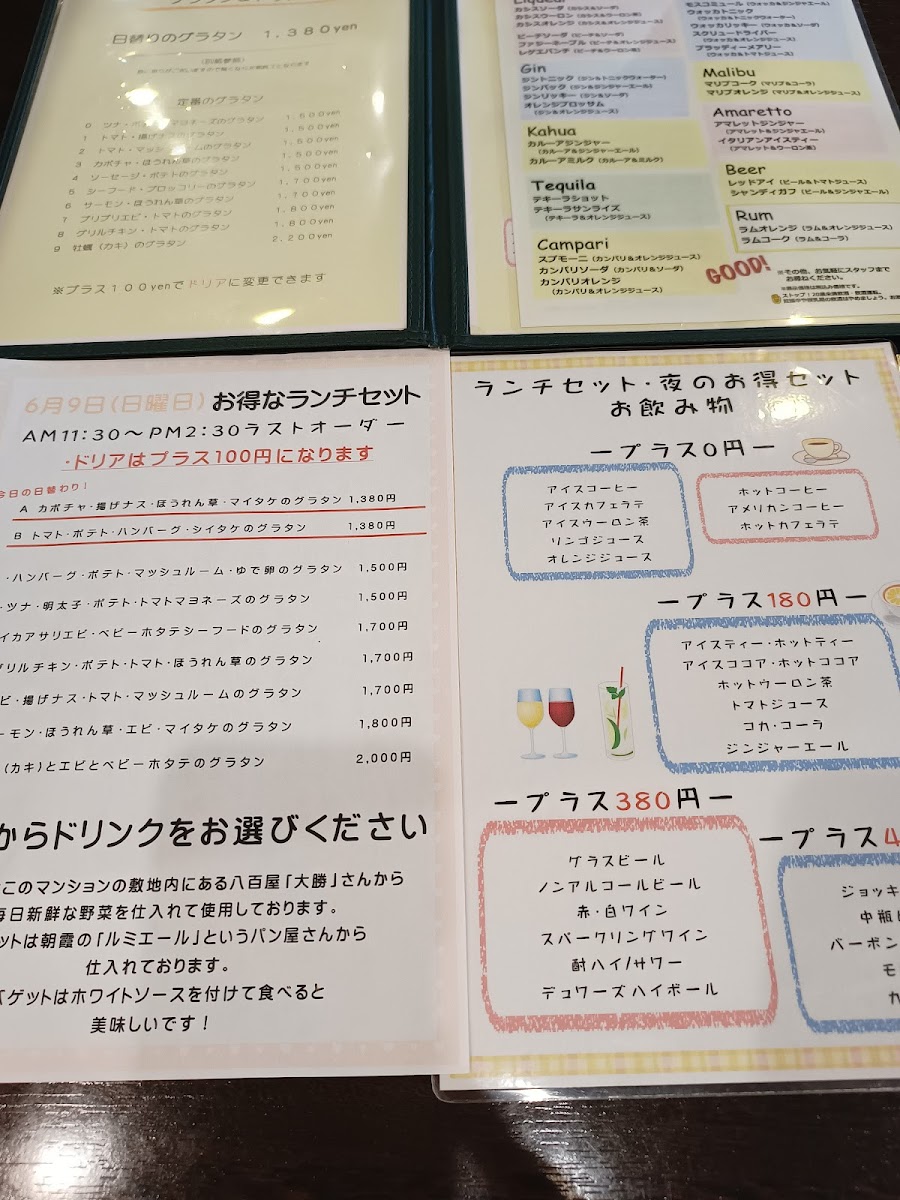 日替りのグラタン 1,380yen
(別紙参照)
定番のグラタン
0 ツナ・ポテト・マヨネーズのグラタン 1,500yen
1 トマト・揚げナスのグラタン 1,500yen
2 トマト・マッシュルームのグラタン 1,500yen
3 カボチャ・ほうれん草のグラタン 1,500yen
4 ソーセージ・ポテトのグラタン 1,500yen
5 シーフード・ブロッコリーのグラタン 1,700yen
6 サーモン・ほうれん草のグラタン 1,700yen
7 プリプリエビ・トマトのグラタン 1,800yen
8 グリルチキン・トマトのグラタン 1,800yen
9 牡蠣(カキ)のグラタン 2,200yen
※プラス100yenでドリアに変更できます
Liqueur
カシスソーダ(カシス&ソーダ)
カシスウーロン(カシス&ウーロン茶)
カシスオレンジ(カシス&オレンジジュース)
ピーチソーダ(ピーチ&ソーダ)
ファジーネーブル(ピーチ&オレンジジュース)
レゲエパンチ(ピーチ&ウーロン茶)
Gin
ジントニック(ジン&トニックウォーター)
ジンバック(ジン&ジンジャーエール)
ジンリッキー(ジン&ソーダ)
オレンジブロッサム
(ジン&オレンジジュース)
Kahua
カルーアジンジャー
(カルーア&ジンジャーエール)
カルーアミルク(カルーア&ミルク)
Tequila
テキーラショット
テキーラサンライズ
(テキーラ&オレンジジュース)
Campari
スプモーニ(カンパリ&オレンジジュース)
カンパリソーダ(カンパリ&ソーダ)
カンパリオレンジ
(カンパリ&オレンジジュース)
モスコミュール(ウォッカ&ジンジャーエール)
ウォッカトニック
(ウォッカ&トニックウォーター)
ウォッカリッキー(ウォッカ&ソーダ)
スクリュードライバー
(ウォッカ&オレンジジュース)
ブラッディーメアリー
(ウォッカ&トマトジュース)
Malibu
マリブコーク(マリブ&コーラ)
マリブオレンジ(マリブ&オレンジジュース)
Amaretto
アマレットジンジャー
(アマレット&ジンジャエール)
イタリアンアイスティー
(アマレット&ウーロン茶)
Beer
レッドアイ(ビール&トマトジュース)
シャンディガフ(ビール&ジンジャエール)
Rum
ラムオレンジ(ラム&オレンジジュース)
ラムコーク(ラム&コーラ)
GOOD!
※その他、お気軽にスタッフまで
お尋ねください。
6月9日(日曜日)お得なランチセット
AM11:30〜PM2:30ラストオーダー
・ドリアはプラス100円になります
今日の日替わり!
A カボチャ・揚げナス・ほうれん草・マイタケのグラタン 1,380円
B トマト・ポテト・ハンバーグ・シイタケのグラタン 1,380円
・ハンバーグ・ポテト・マッシュルーム・ゆで卵のグラタン 1,500円
・ツナ・明太子・ポテト・トマトマヨネーズのグラタン 1,500円
イカアサリエビ・ベビーホタテシーフードのグラタン 1,700円
グリルチキン・ポテト・トマト・ほうれん草のグラタン 1,700円
ビ・揚げナス・トマト・マッシュルームのグラタン 1,700円
ーモン・ほうれん草・エビ・マイタケのグラタン 1,800円
(カキ)とエビとベビーホタテのグラタン 2,000円
からドリンクをお選びください
このマンションの敷地内にある八百屋「大勝」さんから
毎日新鮮な野菜を仕入れて使用しております。
ットは朝霞の「ルミエール」というパン屋さんから
仕入れております。
バゲットはホワイトソースを付けて食べると
美味しいです!
ランチセット・夜のお得セット
お飲み物
ープラス0円ー
アイスコーヒー
アイスカフェラテ
アイスウーロン茶
リンゴジュース
オレンジジュース
ホットコーヒー
アメリカンコーヒー
ホットカフェラテ
ープラス180円ー
アイスティー・ホットティー
アイスココア・ホットココア
ホットウーロン茶
トマトジュース
コカ・コーラ
ジンジャーエール
ープラス380円ー
グラスビール
ノンアルコールビール
赤・白ワイン
スパークリングワイン
酎ハイ/サワー
デュワーズハイボール
ープラス4
ジョッキ
中瓶
バーボン
モ
カ